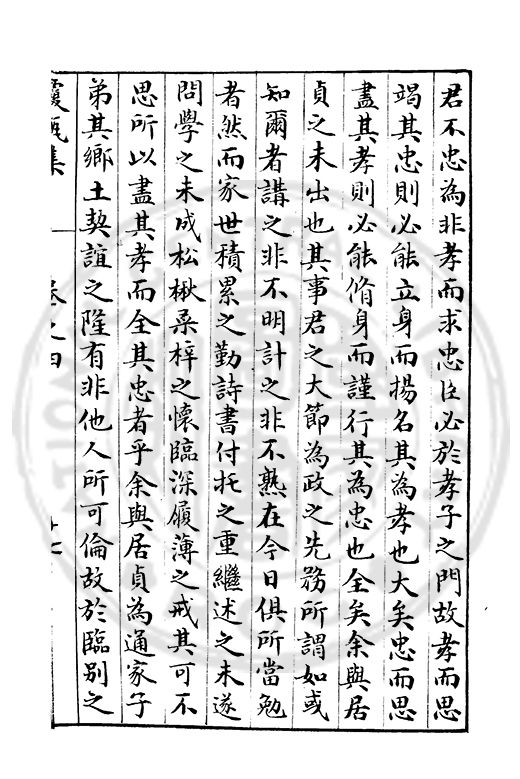 君不忠為非孝而求忠臣必於孝子之門故孝而思
竭其忠則必能立身而揚名其為孝也大矣忠而思
盡其孝則必能脩身而謹行其為忠也全矣余與居
貞之未出也其事君之大節為政之先務所謂如或
知爾者講之非不明計之非不熟在今日俱所當勉
者然而家世積累之勤詩書付托之重繼述之未遂
問學之未成松楸桑梓之懷臨深履薄之戒其可不
思所以盡其孝而全其忠者乎余與居貞為通家子
弟其鄉土契誼之隆有非他人所可倫故於臨別之
集 卷之四